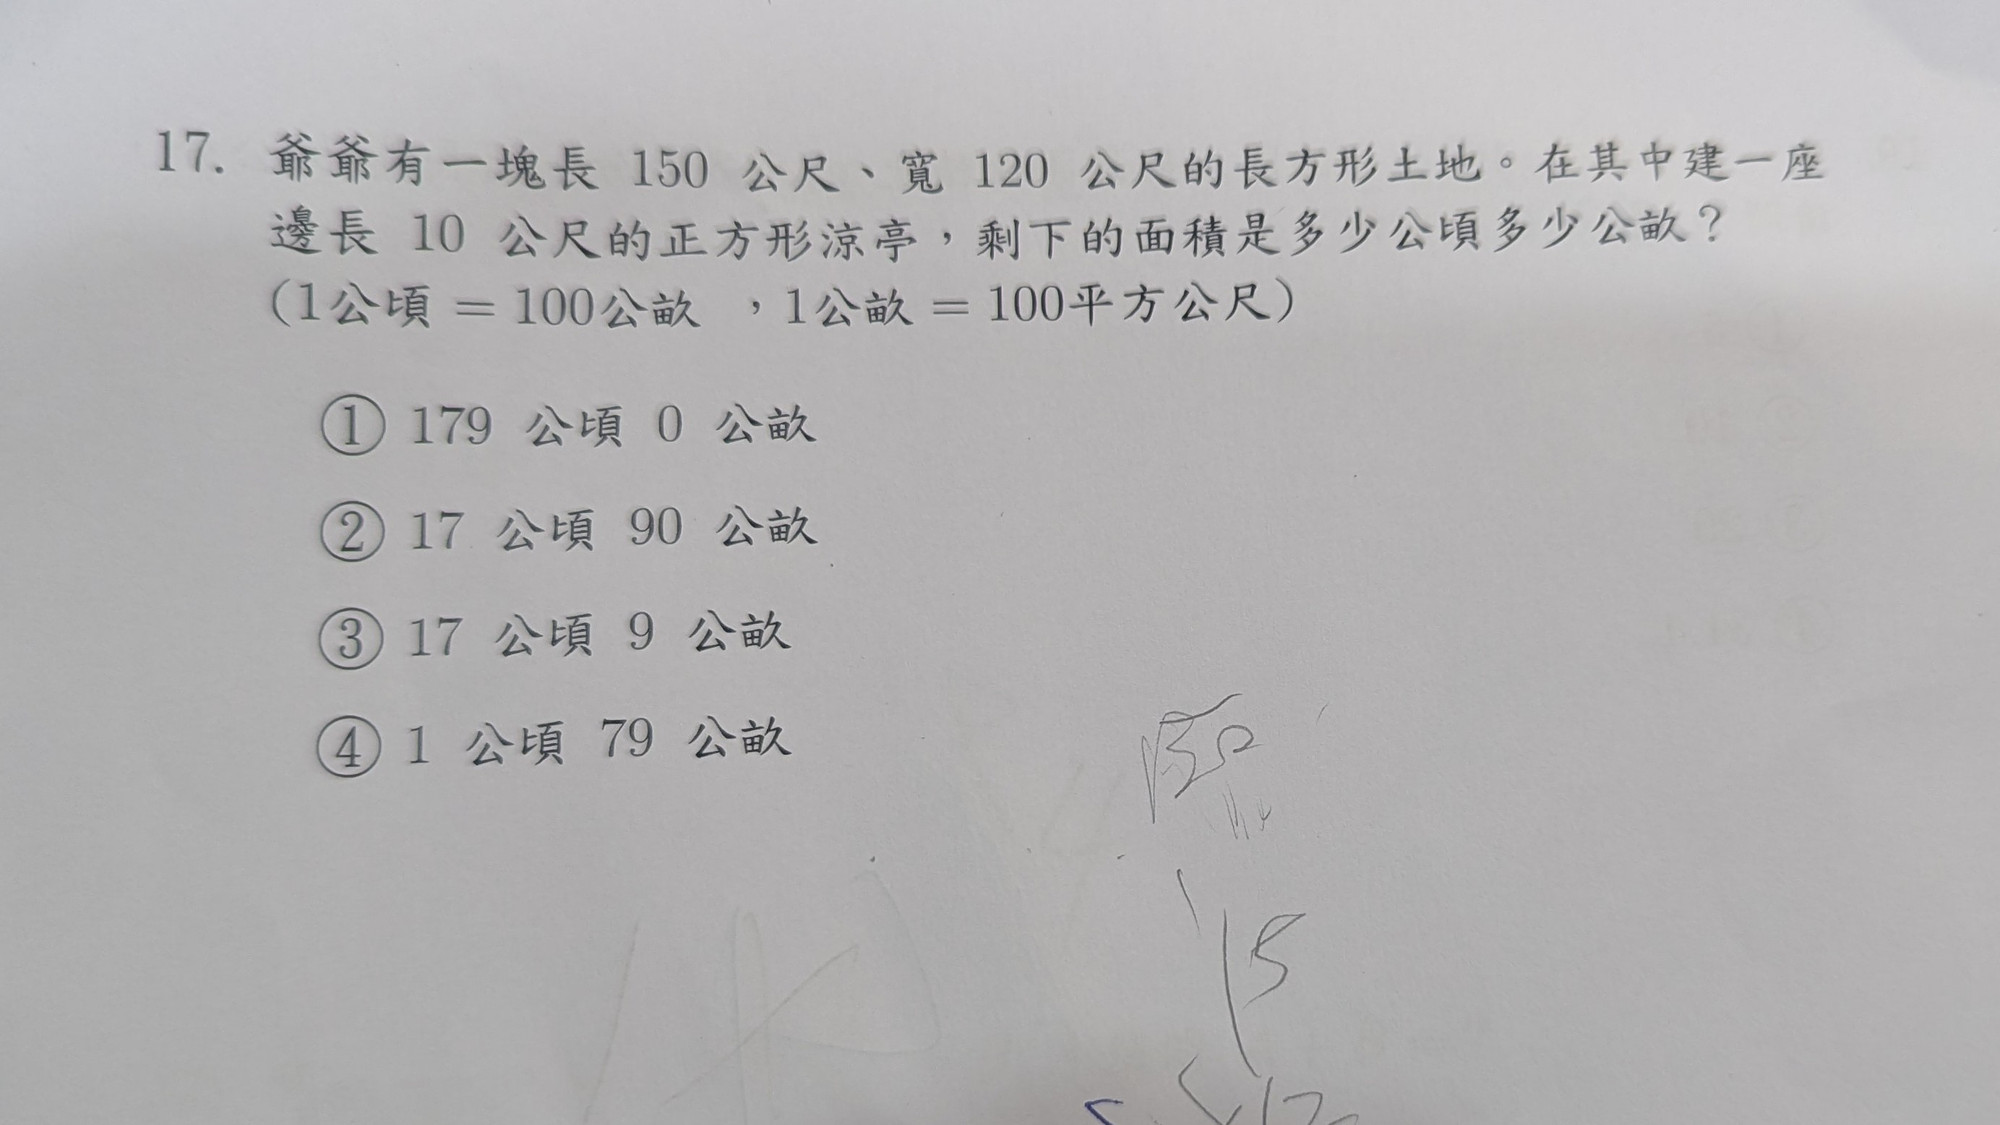 17. 爺爺有一塊長 150 公尺、寬 120 公尺的長方形土地。在其中建一座
邊長 10 公尺的正方形涼亭，剩下的面積是多少公頃多少公畝？
（1公頃 = 100公畝 ，1公畝 = 100平方公尺）
① 179 公頃 0 公畝
② 17 公頃 90 公畝
③ 17 公頃 9 公畝
④ 1 公頃 79 公畝
150
15